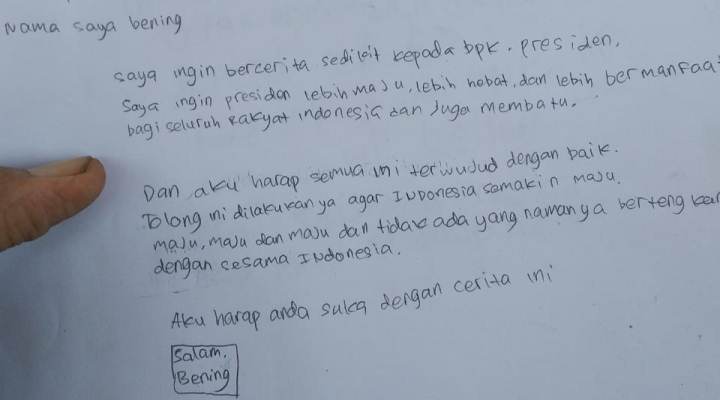 Nama saya bening
saya ingin bercerita sedikit kepada bpk. presiden.
Saya ingin presiden lebih maju, lebih hebat, dan lebih bermanfaat
bagi seluruh Rakyat indonesia dan Juga membatu.
Dan aku harap semua ini terwujud dengan baik.
Tolong ini dilakukan ya agar INDonesia semakin maju.
maju, maju dan maju dan tidak ada yang namanya bertengkar
dengan sesama INdonesia.
Aku harap anda suka dengan cerita ini
Salam.
Bening